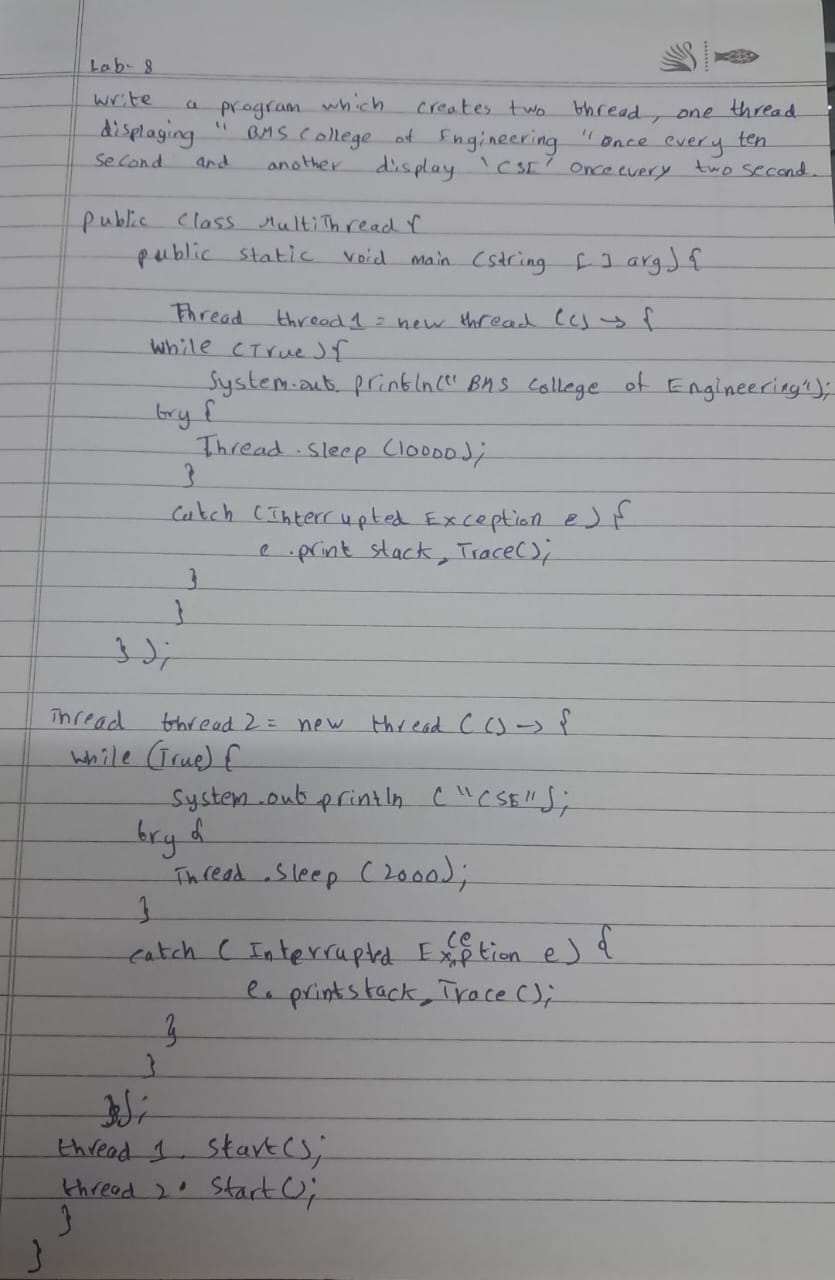 Lab-8
Write a program which creates two thread, one thread
displaging "BMS College of Engineering" once every ten
second and another display 'CSE' once every two second.
public class MultiThread {
public static void main (string [ ] arg) {
Thread thread1 = new thread (() → {
while (True) {
System.out.println(" BMS College of Engineering");
try {
Thread.sleep (10000);
}
catch (Interrupted Exception e) {
e.print stack_Trace();
}
}
});
Thread thread 2 = new thread (() → {
while (True) {
System.out println ("CSE");
try {
Thread.sleep (2000);
}
catch ( Interrupted Exception e) {
e. printstack_Trace ();
}
}
});
thread 1. start();
thread 2. start();
}
}